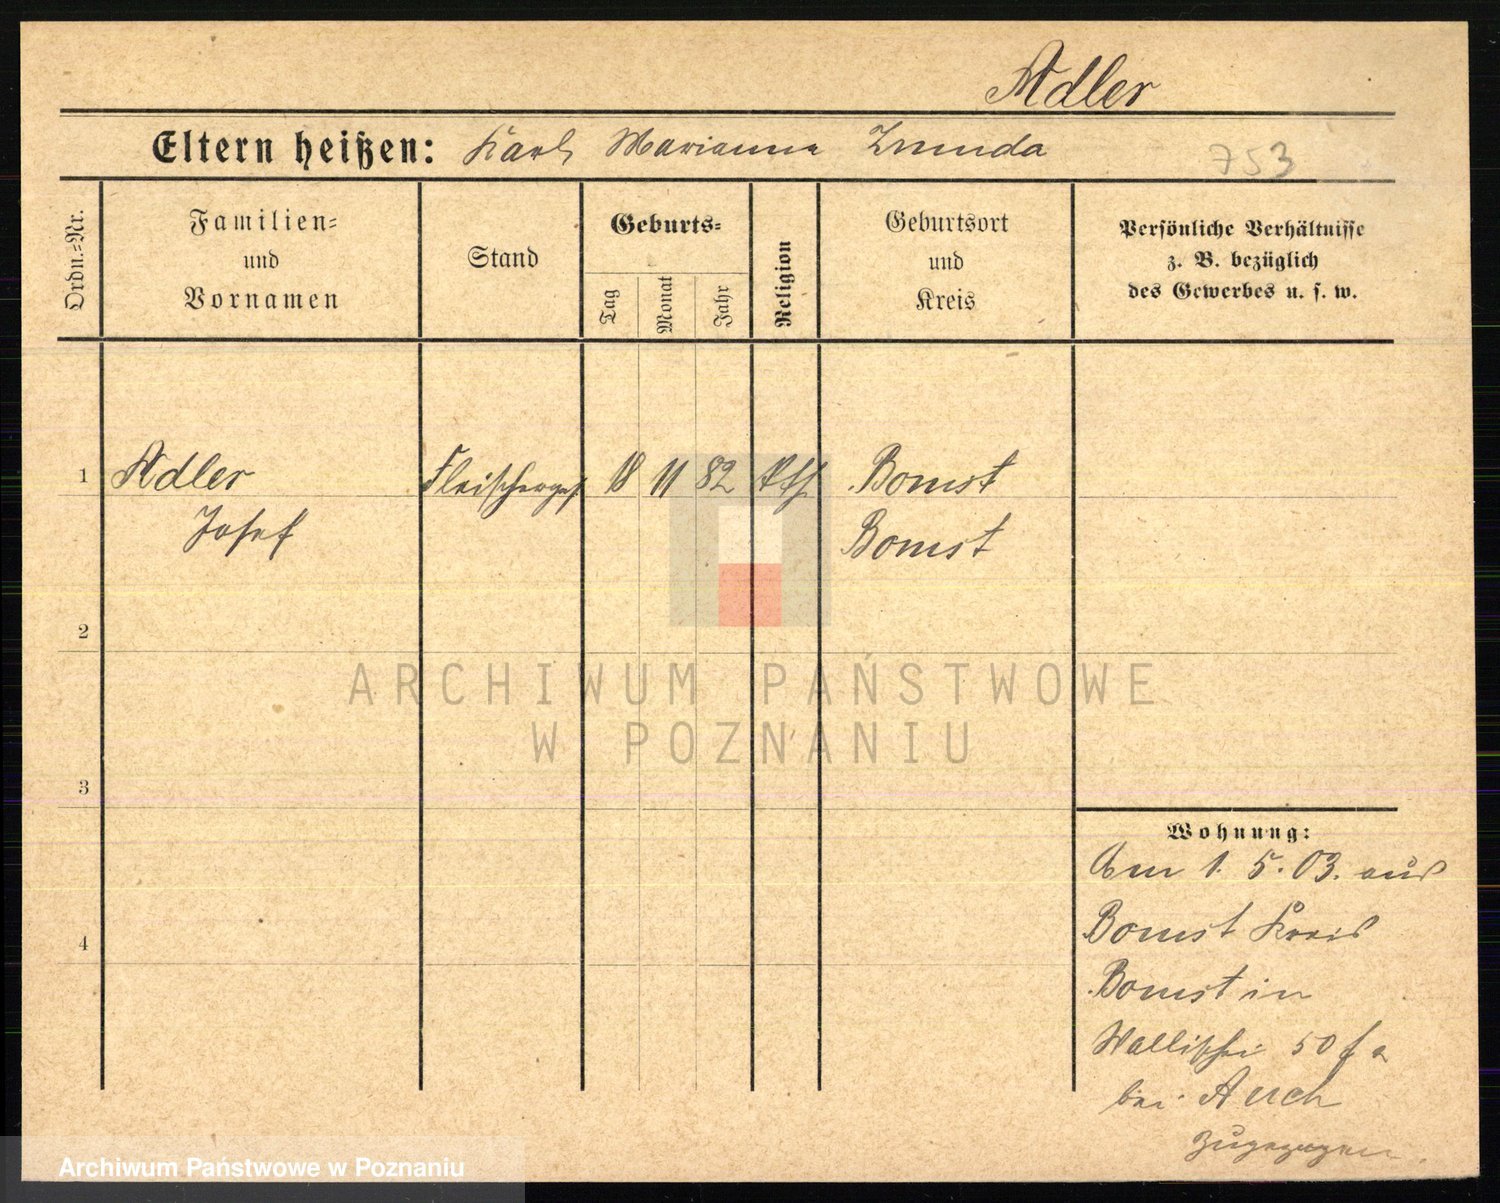 Adler
Eltern heißen: Karl, Marianna Zmuda
753
Ordn.=Nr.
Familien=
und
Vornamen
Stand
Geburts=
Tag
Monat
Jahr
Religion
Geburtsort
und
Kreis
Persönliche Verhältnisse
z. B. bezüglich
des Gewerbes u. s. w.
1 Adler Fleischerges 18 11 82 kth Bomst
Josef Bomst
2
ARCHIWUM PAŃSTWOWE
W POZNANIU
3
4
Wohnung:
Am 1. 5. 03. aus
Bomst Kreis
Bomst in
Wallischei 50
bei
zugezogen.
Archiwum Państwowe w Poznaniu